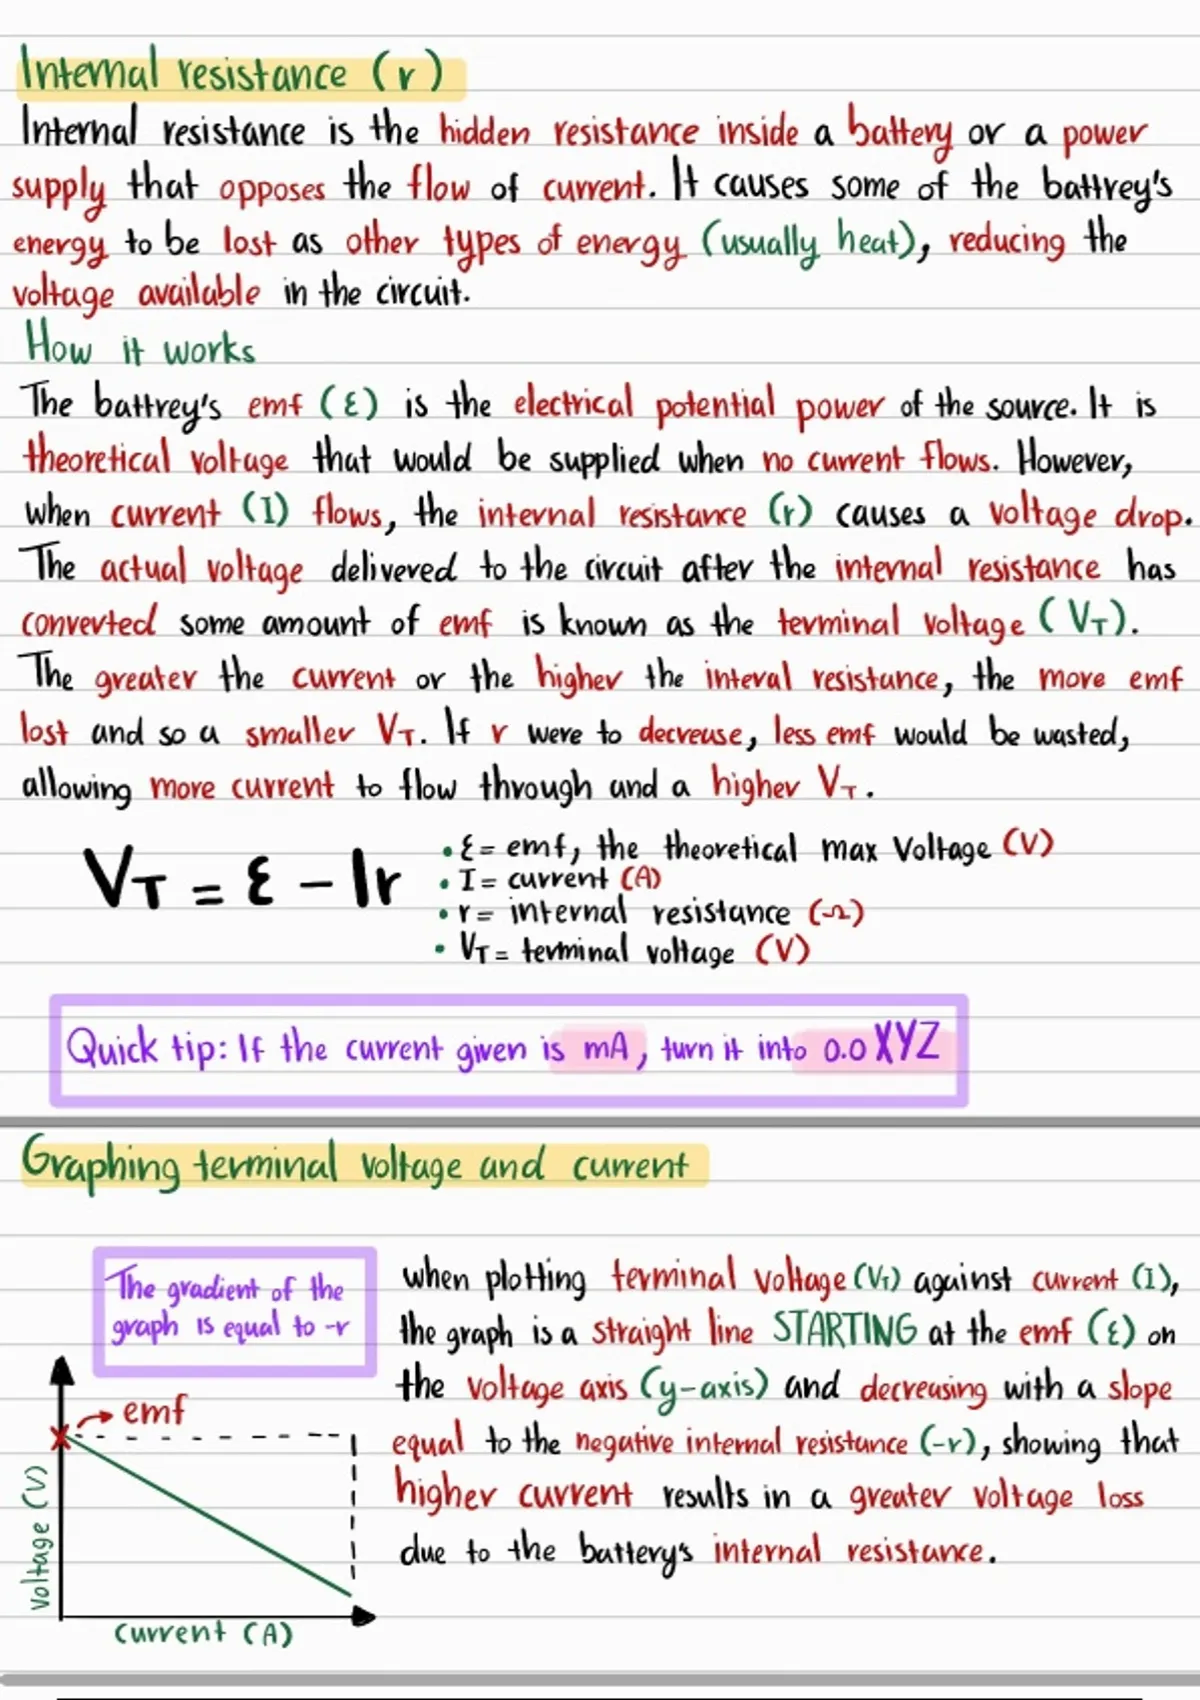 Internal resistance (r)
Internal resistance is the hidden resistance inside a battery or a power
supply that opposes the flow of current. It causes some of the battrey's
energy to be lost as other types of energy (usually heat), reducing the
voltage available in the circuit.
How it works
The battrey's emf (ε) is the electrical potential power of the source. It is
theoretical voltage that would be supplied when no current flows. However,
when current (I) flows, the internal resistance (r) causes a voltage drop.
The actual voltage delivered to the circuit after the internal resistance has
converted some amount of emf is known as the terminal voltage (V_T).
The greater the current or the higher the interval resistance, the more emf
lost and so a smaller V_T. If r were to decrease, less emf would be wasted,
allowing more current to flow through and a higher V_T.
V_T = ε - Ir
• ε = emf, the theoretical max Voltage (V)
• I = current (A)
• r = internal resistance (Ω)
• V_T = terminal voltage (V)
Quick tip: If the current given is mA, turn it into 0.0XYZ
Graphing terminal voltage and current
The gradient of the
graph is equal to -r
emf
voltage (V)
current (A)
when plotting terminal voltage (V_T) against current (I),
the graph is a straight line STARTING at the emf (ε) on
the voltage axis (y-axis) and decreasing with a slope
equal to the negative internal resistance (-r), showing that
higher current results in a greater voltage loss
due to the battery's internal resistance.